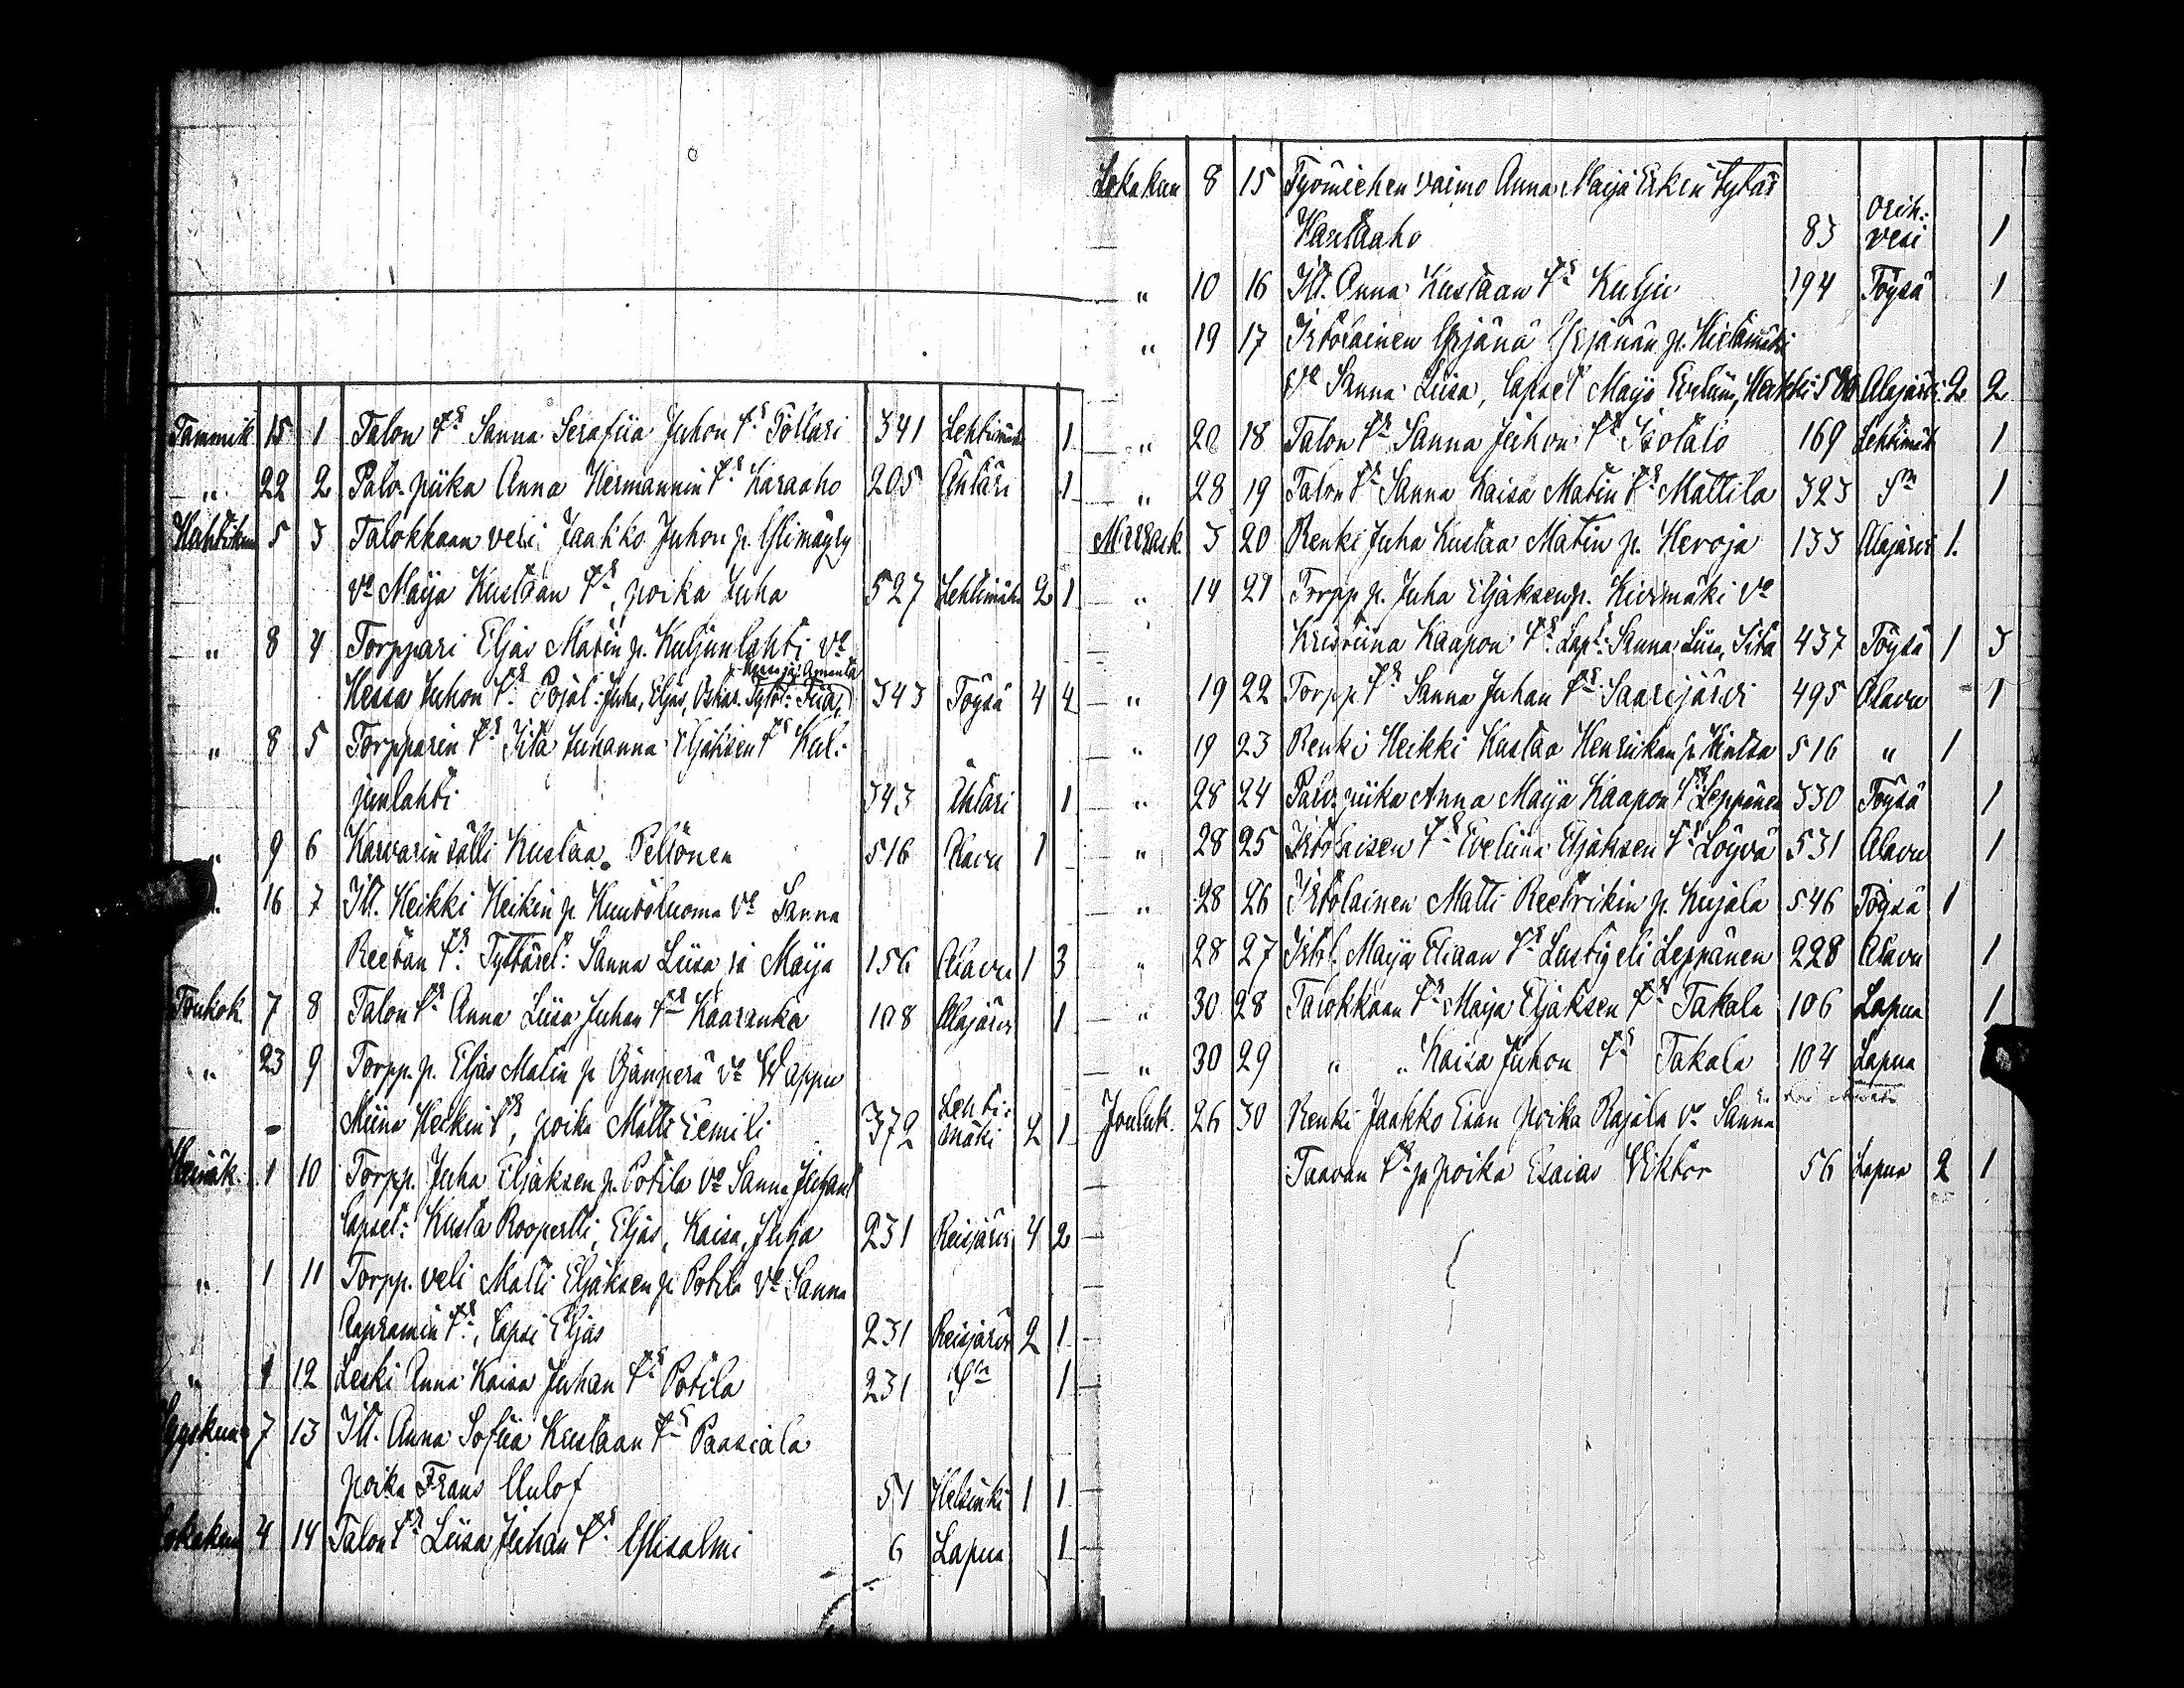 Tammik 15 1 Talon tr Sanna Serafiia Juhon tr Töllari 341 Lehtimäki 1
" 22 2 Palv. piika Anna Hermannin tr Karaaho 205 Ähtäri 1
Huhtikuu 5 3 Talokkaan veli Jaakko Juhon p. Ylimäyry
vo Maija Kustaan tr, poika Juha 527 Lehtimäki 2 1
" 8 4 Torppari Eljas Matin p. Kuljunlahti vo
Hessa Juhon tr Pojat: Juha, Eljas, Oskar. Tytöt: Fiia, 343 Töysä 4 4
" 8 5 Torpparin tr Iita Juhanna Eljaksen tr Kul-
junlahti 343 Ähtäri 1
" 9 6 Karvarin sälli Kustaa Peltonen 516 Alavu 1
16 7 Itl. Heikki Heikin p. Huutoluoma vo Sanna
Reetan tr. Tyttäret: Sanna Liisa ja Maija 156 Alavu 1 3
Toukok. 7 8 Talon tr Anna Liisa Juhan tr Kaaranka 108 Alajärvi 1
" 23 9 Torpp. p. Eljas Matin p. Ojanperä vo Wappu
Miina Heikin tr, poika Matti Eemili 372 Lehti-mäki 2 1
Heinäk. 1 10 Torpp. Juha Eljaksen p. Potila vo Sanna Juhan tr
Lapset: Kusta Roopertti, Eljas, Kaisa, Juha 231 Reisjärvi 4 2
" 1 11 Torpp. veli Matti Eljaksen p. Potila vo Sanna
Aapramin tr, lapsi Eljas 231 Reisjärvi 2 1
" 1 12 Leski Anna Kaisa Juhan tr Potila 231 Sm 1
Syyskuu 7 13 Itl. Anna Sofiia Kustaan tr Paasiala
poika Frans Uulof 51 Helsinki 1 1
Lokakuu 4 14 Talon tr Liisa Juhan tr Ylisalmi 6 Lapua 1
Lokakuu 8 15 Työmiehen vaimo Anna Maija Erkin tytär
Hartaaho 83 Orih-vesi 1
" 10 16 Itl. Anna Kustaan tr Kulju 194 Töysä 1
" 19 17 Irtolainen Yrjänä Yrjänän p. Hietamäki
vo Sanna Liisa, lapset Maija Eveliina, Heikki 586 Alajärvi 2 2
" 20 18 Talon tr Sanna Juhon tr Isotalo 169 Lehtimäki 1
" 28 19 Talon tr Sanna Kaisa Matin tr Mattila 323 Sm 1
Marrask 3 20 Renki Juha Kustaa Matin p. Heroja 133 Alajärvi 1.
" 14 21 Torpp p. Juha Eljaksen p. Kivimäki vo
Kristiina Kaapon tr Laps: Sanna Liisa, Iita 437 Töysä 1 3
" 19 22 Torpp tr Sanna Juhan tr Saarijärvi 495 Alavu 1
" 19 23 Renki Heikki Kustaa Henrikan p. Hintsa 516 " 1
" 28 24 Palv. piika Anna Maija Kaapon tr Leppänen 330 Töysä 1
" 28 25 Irtolaisen tr Eveliina Eljaksen tr Löyvä 531 Alavu 1
" 28 26 Irtolainen Matti Reetrikin p. Kujala 546 Töysä 1
" 28 27 Irtol. Maija Eliaan tr Lustig eli Leppänen 228 Alavu 1
" 30 28 Talokkaan tr Maija Eljaksen tr Takala 106 Lapua 1
" 30 29 " " Kaisa Juhon tr Takala 104 Lapua
Jouluk. 26 30 Renki Jaakko Esan poika Rajala vo Sanna
Taavan tr ja poika Esaias Wiktor 56 Lapua 2 1